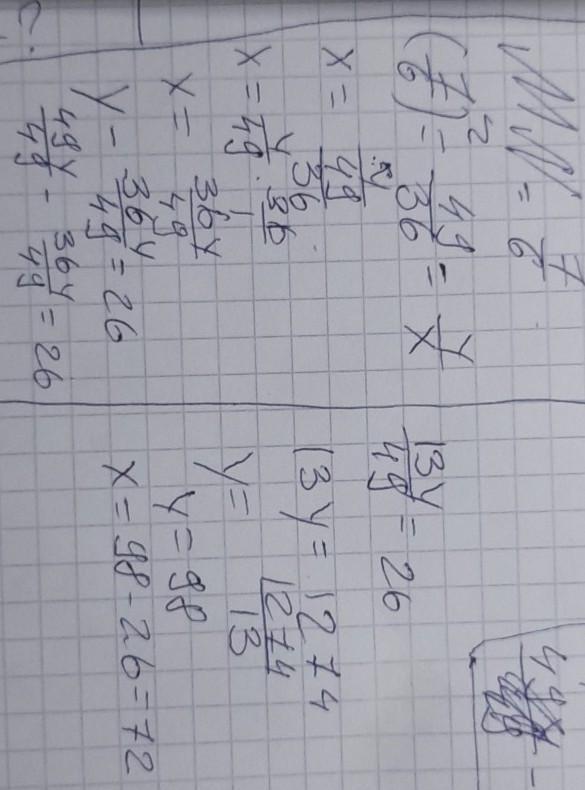 = 7/6
(7/6)² = 49/36 = y/x
x = y/(49/36)
x = y/49 · 36/1
x = 36y/49
y - 36y/49 = 26
49y/49 - 36y/49 = 26
13y/49 = 26
13y = 1274
y = 1274/13
y = 98
x = 98 - 26 = 72
C.